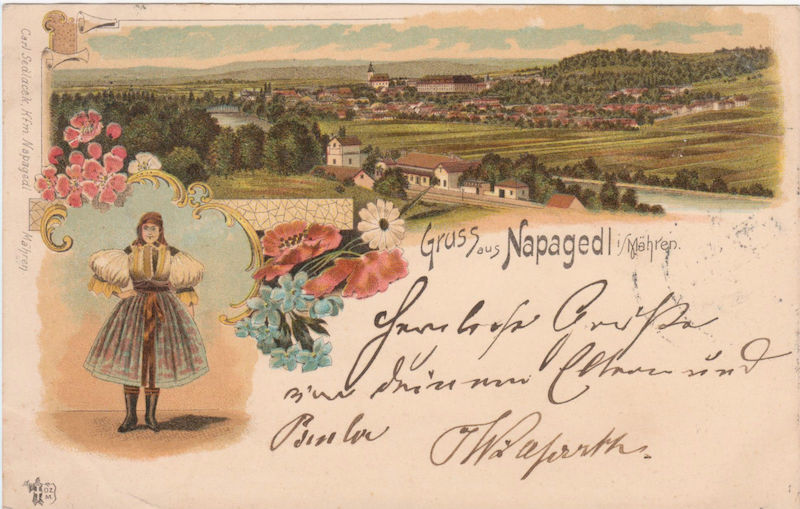 Carl Sedlacek, Kfm. Napagedl Mähren
Gruss aus Napagedl i/Mähren.
Herzliche Grüße
deinen Eltern und
Paula
DZ
M.